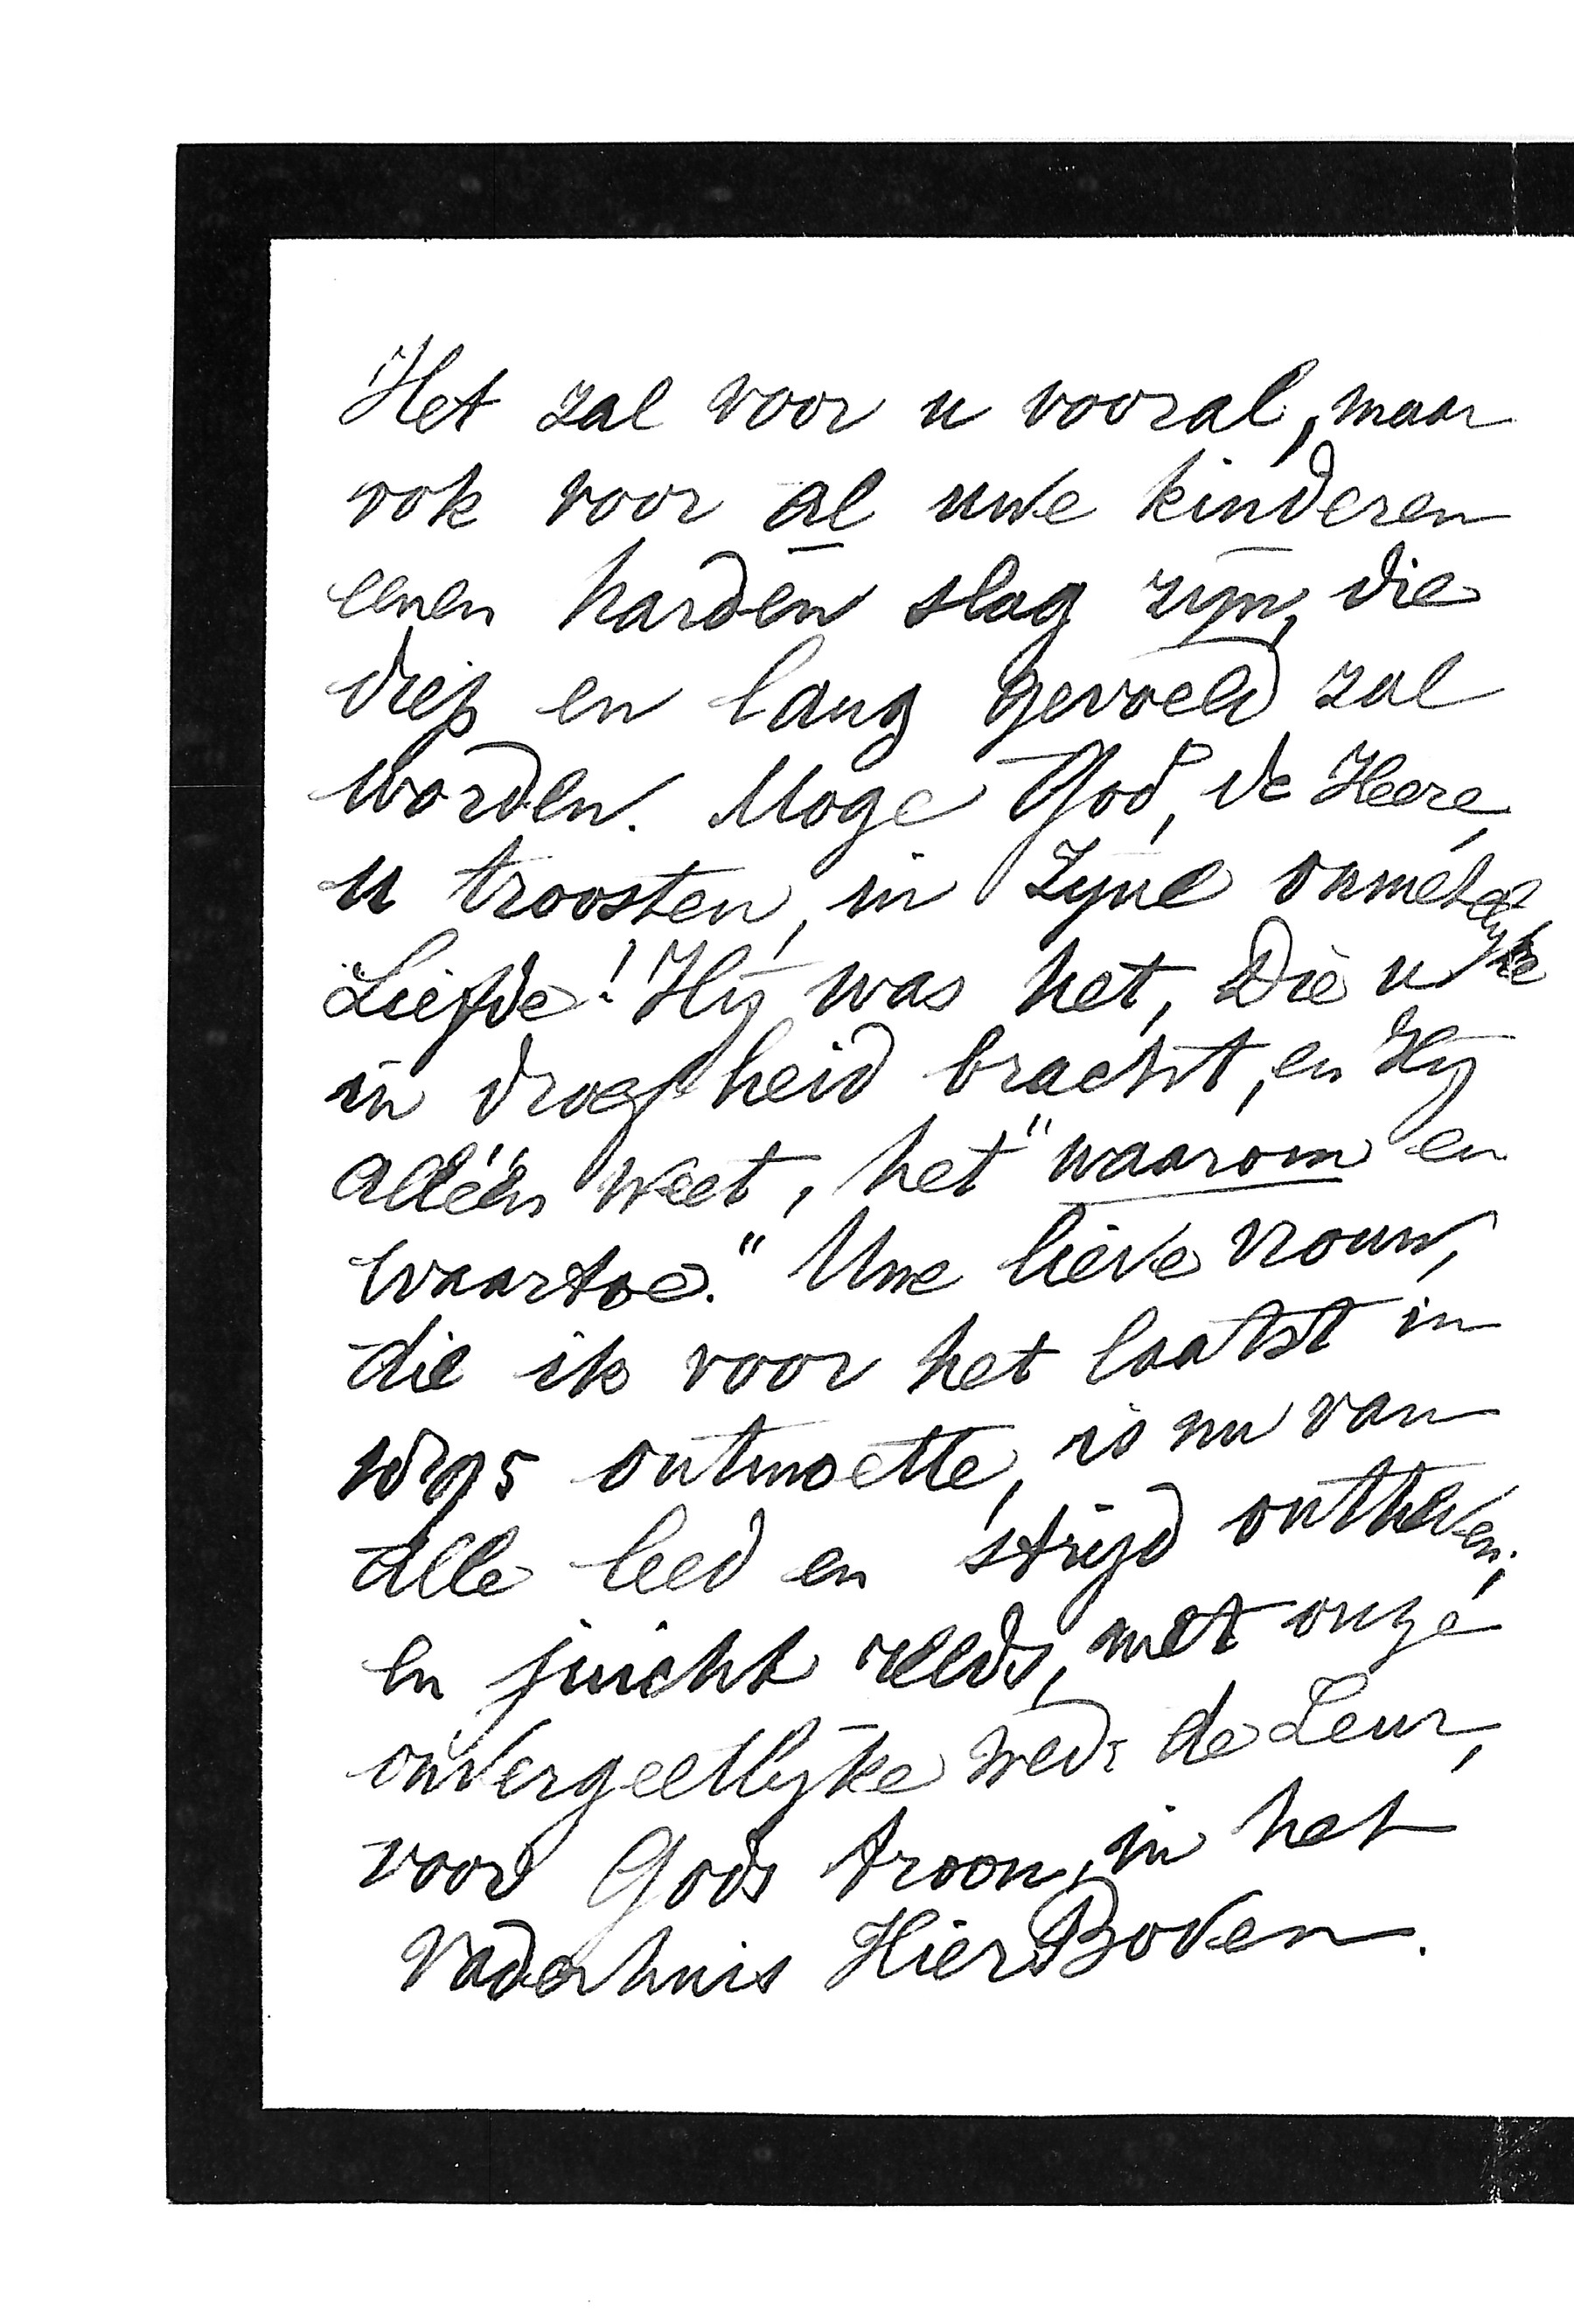 Het zal voor u vooral, maar
ook voor al uwe kinderen
eenen harden slag zijn, die
diep en lang gevoeld zal
worden. Moge God, de Heere,
u troosten, in Zijne onmetelijke
Liefde! Hij was het, Die u
in droefheid bracht, en Hij
alléén weet, het "waarom en
waartoe." Uwe lieve vrouw,
die ik voor het laatst in
1895 ontmoette, is nu van
alle leed en strijd ontheven;
en juicht reeds, met onze
onvergeetlijke wed: de Leur,
voor Gods troon, in het
Vaderhuis HierBoven.